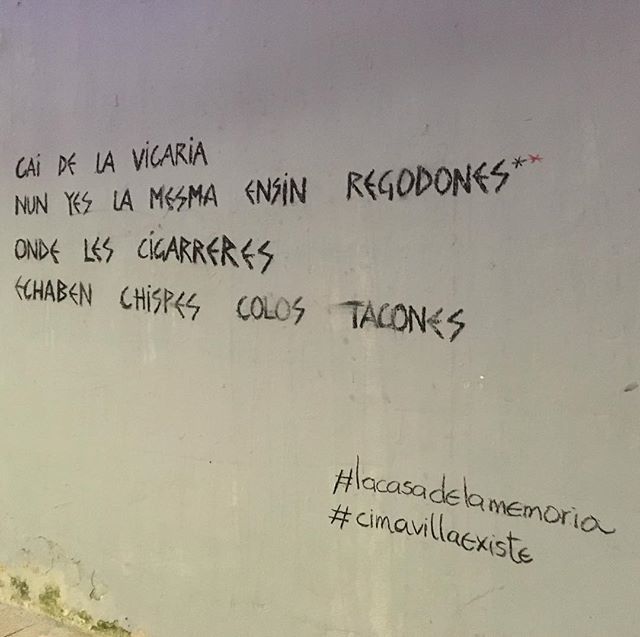 CAI DE LA VICARIA
NUN YES LA MESMA ENSIN REGODONES**
ONDE LES CIGARRERES
ECHABEN CHISPES COLOS TACONES
#lacasadelamemoria
#cimavillaexiste